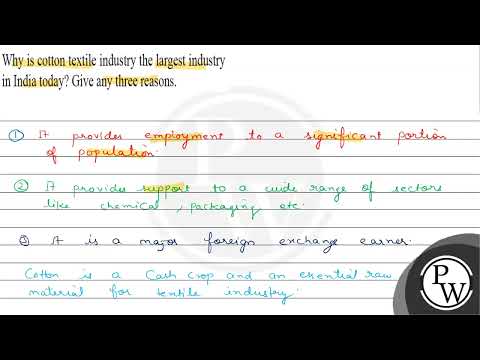 Why is cotton textile industry the largest industry
in India today? Give any three reasons.
① It provides employment to a significant portion
of population.
② It provides support to a wide range of sectors
like chemical, packaging etc.
③ It is a major foreign exchange earner.
Cotton is a cash crop and an essential raw
material for textile industry.
P
W